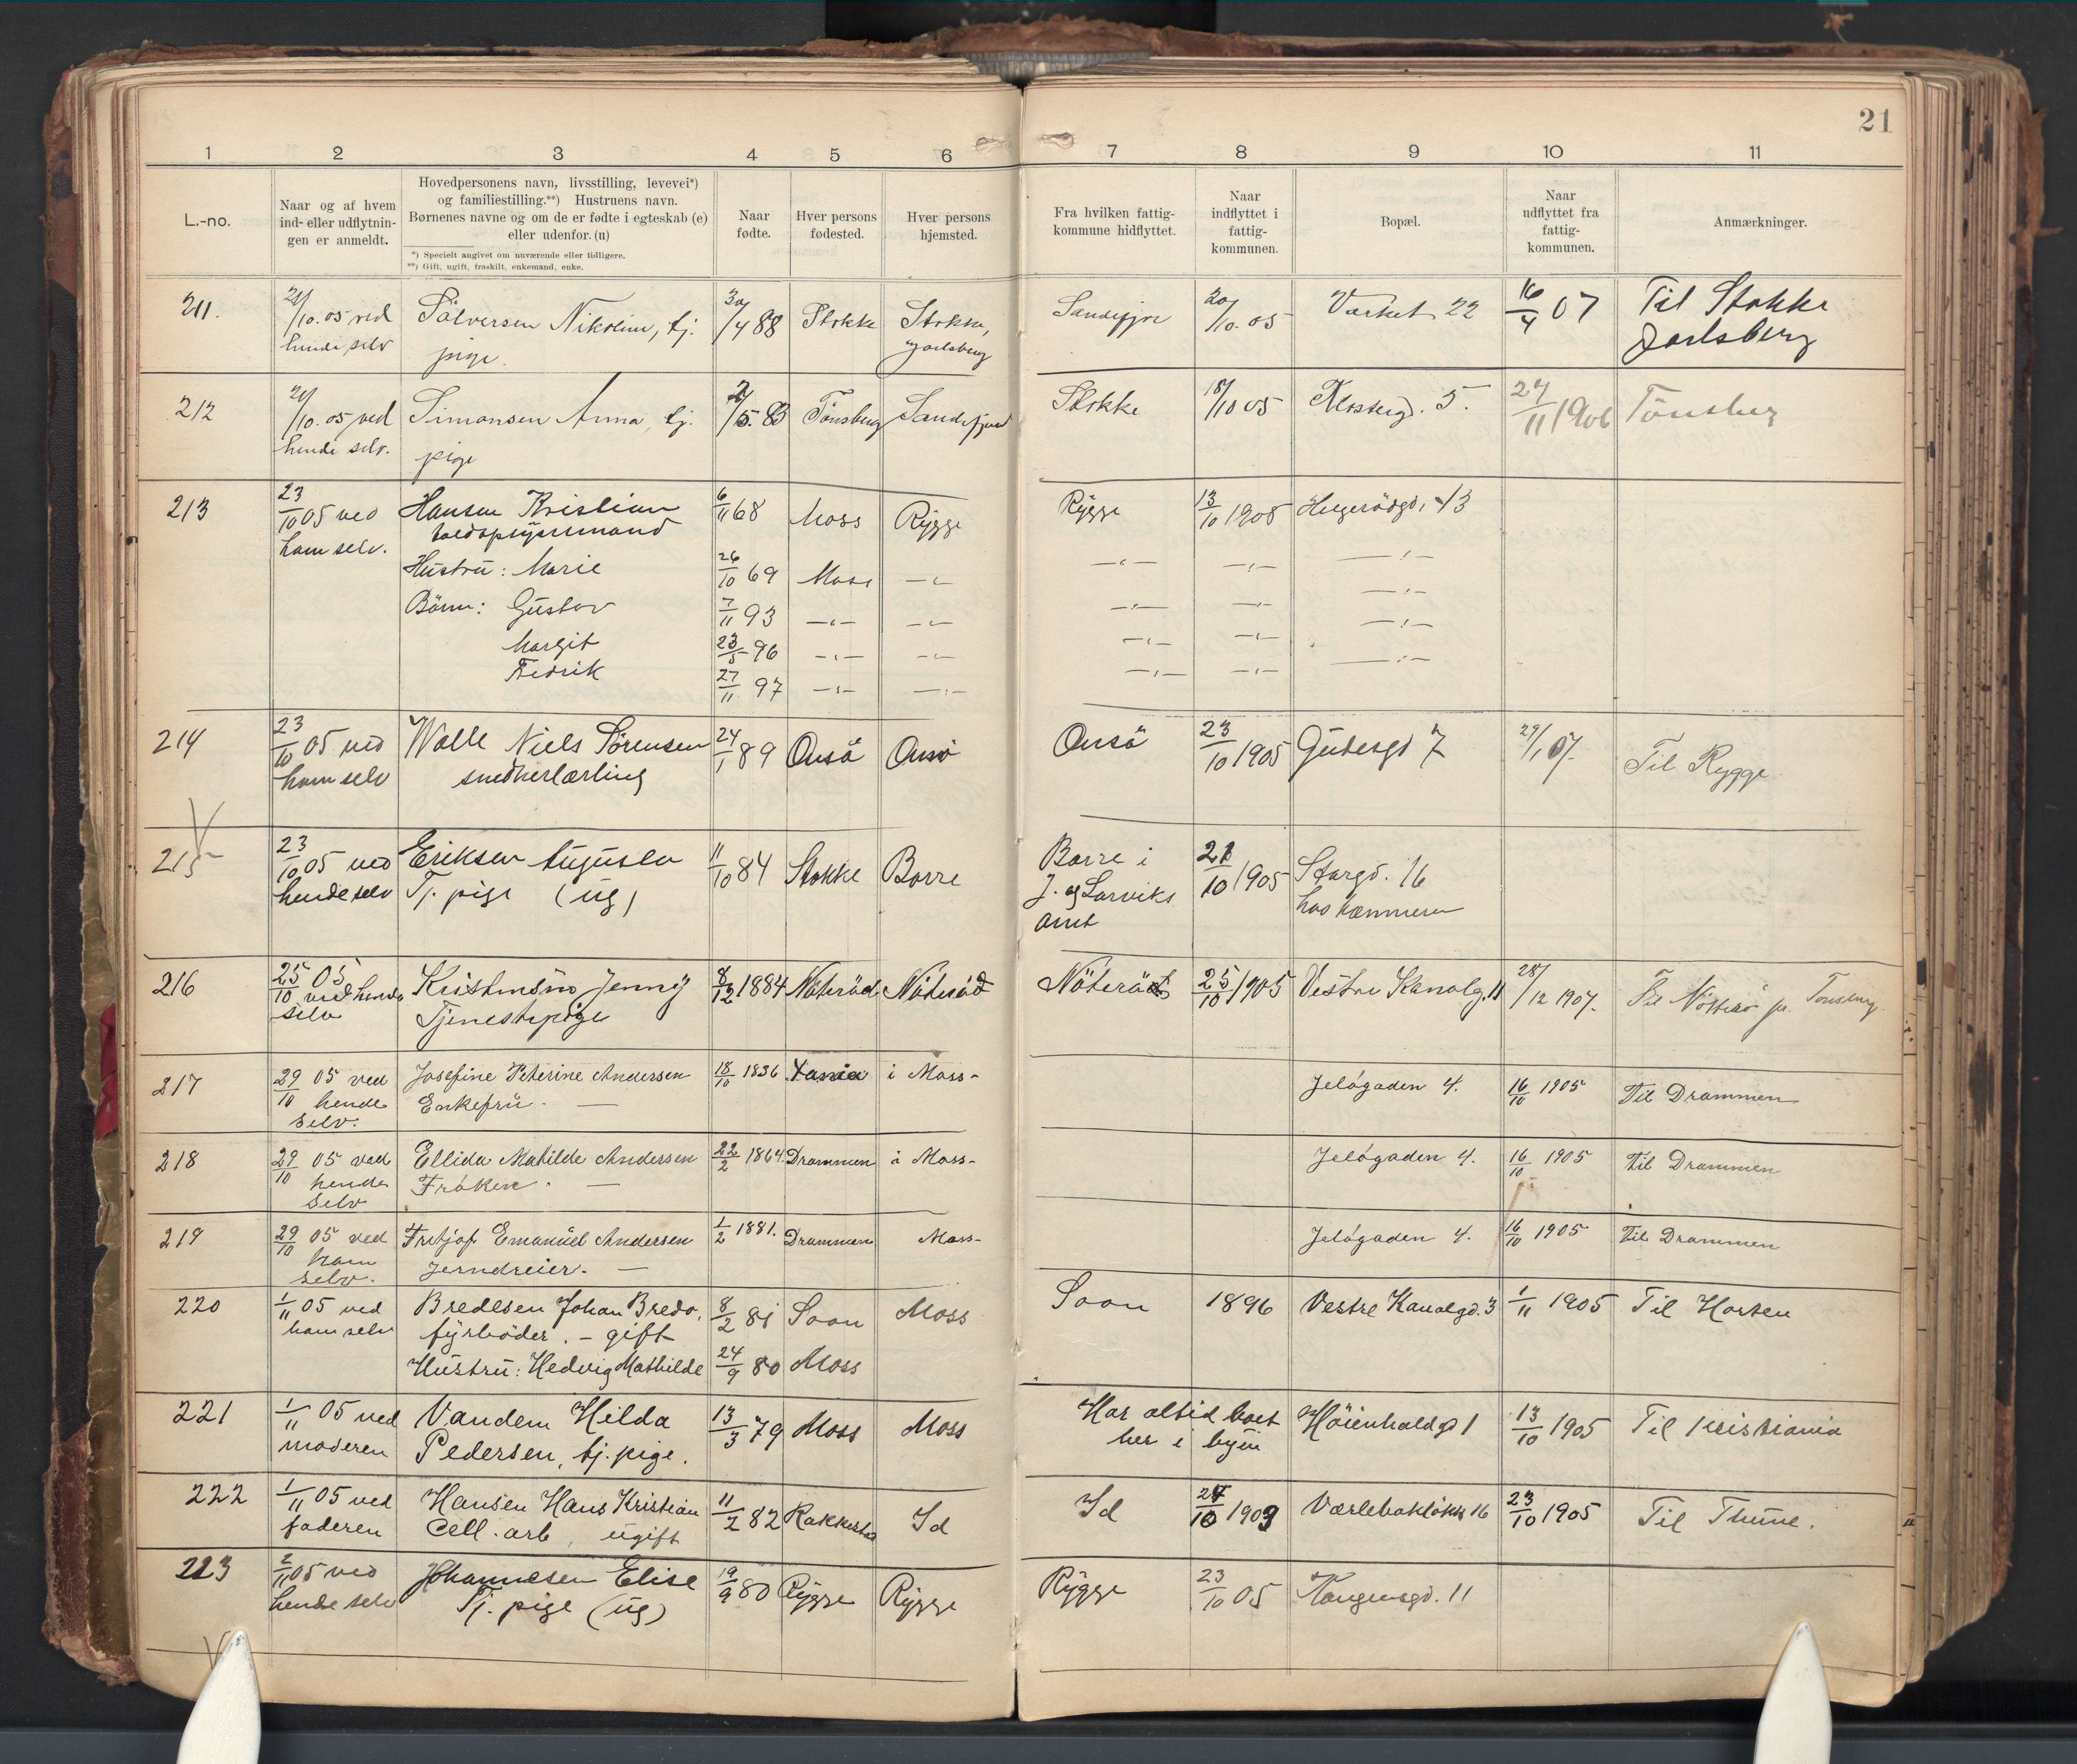 21
1 2 3 4 5 6 7 8 9 10 11
L.-no.
Naar og af hvem
ind- eller udflytnin-
gen er anmeldt.
Hovedpersonens navn, livsstilling, levevei*)
og familiestilling.**) Hustruens navn.
Børnenes navne og om de er fødte i egteskab (e)
eller udenfor. (u)
*) Specielt angivet om nuværende eller tidligere.
**) Gift, ugift, fraskilt, enkemand, enke.
Naar
fødte.
Hver persons
fødested.
Hver persons
hjemsted.
Fra hvilken fattig-
kommune hidflyttet.
Naar
indflyttet i
fattig-
kommunen.
Bopæl.
Naar
udflyttet fra
fattig-
kommunen.
Anmærkninger.
211. 21/10.05 ved Sölversen Nikoline, tj. 30/4 88 Stokke Stokke, Sandefjor 20/10.05 Værket 22 16/4 07 Til Stokke
hende selv pige. Jarlsberg Jarlsberg
212 21/10.05 ved Simonsen Anna, tj. /5. 83 Tönsberg Sandefjord Stokke 18/10 05 5. 27/11 1906 Tönsberg
hende selv. pige
213 23/10 05 ved Hansen Kristian 6/11 68 Moss Rygge Rygge 13/10 1905 Hegerödgd, 43
ham selv.
Hustru: Marie 26/10 69 Moss —〃— —〃— —〃— —〃—
Börn: Gustav 7/11 93 —〃— —〃— —〃— —〃— —〃—
Margit 23/5 96 —〃— —〃— —〃— —〃— —〃—
Fredrik 27/11 97 —〃— —〃— —〃— —〃— —〃—
214 23/10 05 ved Walle Niels Sörensen 24/1 89 Onsö Onsö Onsö 23/10 1905 Gudesgd 7 29/1 07. Til Rygge
ham selv snedkerlærling
215 23/10 05 ved Eriksen Augusta 11/10 84 Stokke Borre Borre i 21/10 1905 Storgd. 16
hende selv Tj. pige (ug) J. og Larviks hos kæmneren
Amt
216 25/10 05 Kristensen Jenny 8/12 1884 Nöteröd Nöteröd Nöteröd 25/10 1905 Vestre Kanalg. 11 28/12 1907. Til Nötterö pr. Tönsberg
ved hende Tjenestepige
selv
217 29/10 05 ved Josefine Peterine Andersen 18/10 1836 i Moss- Jelögaden 4. 16/10 1905 Til Drammen
hende Enkefru. —
selv.
218 29/10 05 ved Ellida Mathilde Andersen 22/2 1864. Drammen i Moss- Jelögaden 4. 16/10 1905 Til Drammen
hende Fröken. —
selv
219 29/10 05 ved Fritjof Emanuel Andersen 1/2 1881. Drammen Moss- Jelögaden 4. 16/10 1905 Til Drammen
ham Jerndreier. —
selv.
220 1/11 05 ved Bredesen Johan Bredo, 8/2 81 Soon Moss Soon 1896 Vestre Kanalgd. 3 1/11 1905 Til Horten
ham selv fyrböder. – gift
Hustru: Hedvig Mathilde 24/9 80 Moss
221 1/11 05 ved Vandem Hilda 13/3 79 Moss Moss Har altid boet Höienhaldgd 1 13/10 1905 Til Kristiania
moderen Pedersen, tj. pige. her i byen
222 1/11 05 ved Hansen Hans Kristian 11/2 82 Rakkestad Id Id 24/10 1903 Værlebakløkk 16 23/10 1905 Til Thune.
faderen Cell. arb, ugift
223 2/11 05 ved Johannesen Elise 19/9 80 Rygge Rygge Rygge 23/10 05 Kongensgd. 11
hende selv Tj. pige (ug)